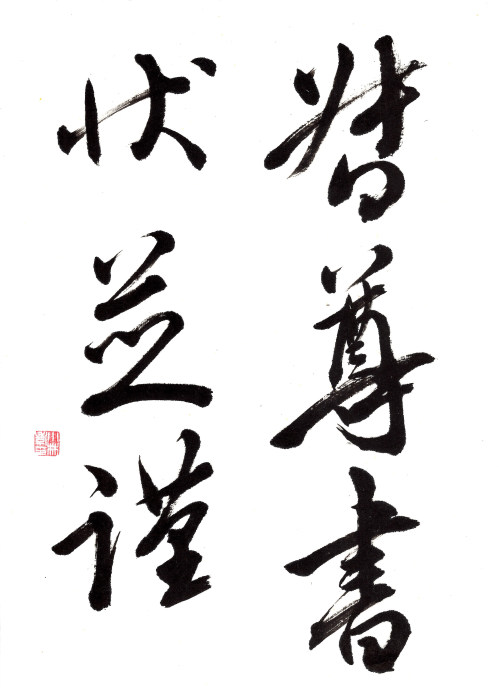 尊書
状並謹